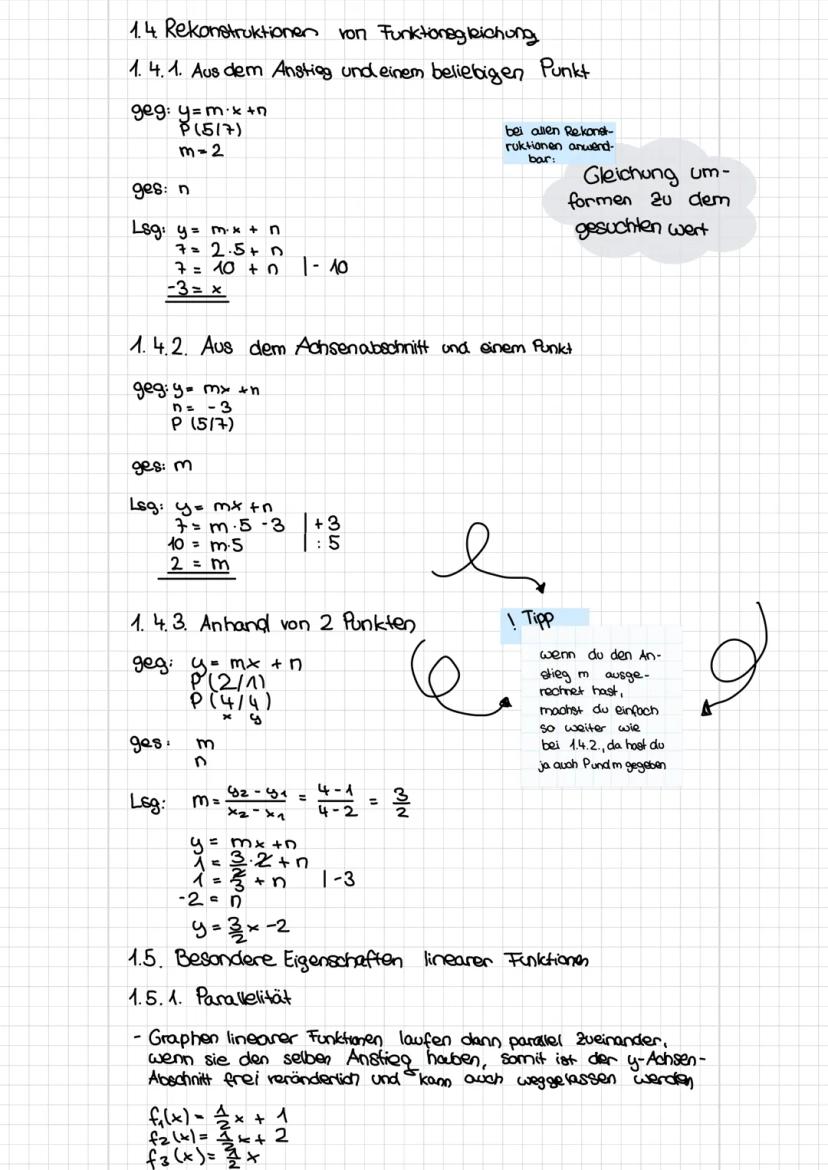 1.4 Rekonstruktionen von Funktionsgleichung
1.4.1. Aus dem Anstieg und einem beliebigen Punkt
geg: y=m·x+n
P(5/7)
m=2
bei allen Rekonst-
ruktionen anwend-
bar:
Gleichung um-
formen zu dem
gesuchten wert
ges: n
Lsg: y= m·x + n
7= 2·5+ n
7= 10 + n |- 10
-3= x
1.4.2. Aus dem Achsenabschnitt und einem Punkt
geg: y= mx +n
n= -3
P (5/7)
ges: m
Lsg: y= mx +n
7= m·5 -3 |+3
10 = m·5 |:5
2 = m
1.4.3. Anhand von 2 Punkten
! Tipp
wenn du den An-
stieg m ausge-
rechnet hast,
machst du einfach
so weiter wie
bei 1.4.2., da hast du
ja auch P und m gegeben
geg: y= mx +n
P(2/1)
P(4/4)
x y
ges: m
n
Lsg: m= y2-y1/x2-x1 = 4-1/4-2 = 3/2
y= mx +n
1= 3/2·2+n
1= 3 +n |-3
-2= n
y= 3/2x -2
1.5. Besondere Eigenschaften linearer Funktionen
1.5.1. Parallelität
- Graphen linearer Funktionen laufen dann parallel zueinander,
wenn sie den selben Anstieg haben, somit ist der y-Achsen-
Abschnitt frei veränderlich und kann auch weggelassen werden
f1(x)= 1/2x + 1
f2(x)= 1/2x + 2
f3(x)= 1/2x